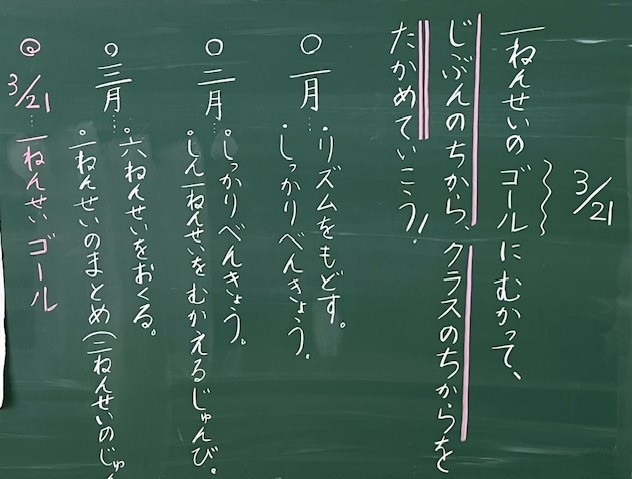 3/21
一ねんせいのゴールにむかって、
じぶんのちから、クラスのちからを
たかめていこう!
○一月…・リズムをもどす。
・しっかりべんきょう。
○二月…・しっかりべんきょう。
・しん一ねんせいをむかえるじゅんび。
○三月…・六ねんせいをおくる。
・一ねんせいのまとめ(二ねんせいのじゅ
◎3/21…一ねんせいゴール